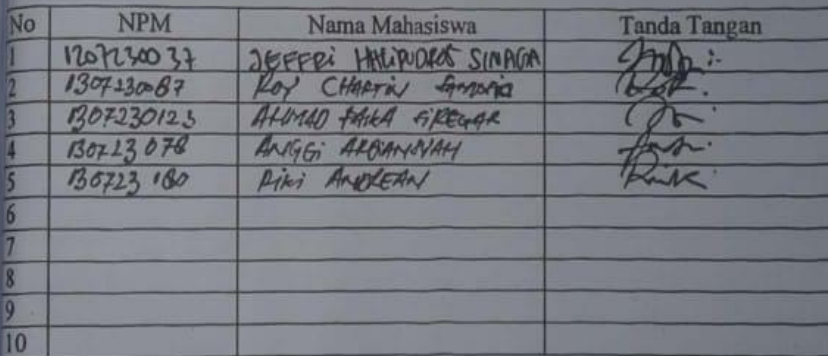 No NPM Nama Mahasiswa Tanda Tangan
1 1207230037 JEFFRi SINAGA
2 1307230087 ROY CHARTIN
3 1307230123 AHMAD FAIKA SIREGAR
4 130723 078 ANGGi ARDIANSYAH
5 130723 180 Riki ANDREAN
6
7
8
9
10